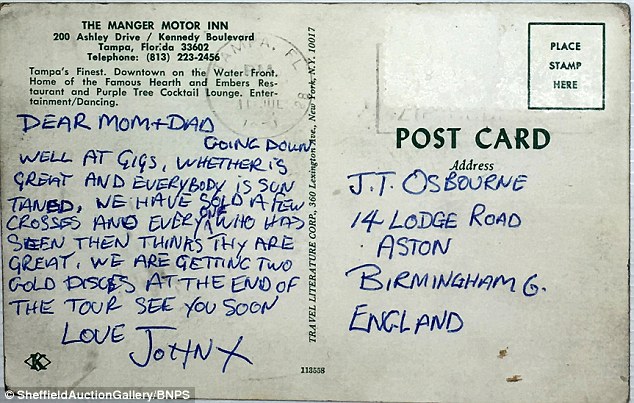 THE MANGER MOTOR INN
200 Ashley Drive / Kennedy Boulevard
Tampa, Florida 33602
Telephone: (813) 223-2456
Tampa's Finest. Downtown on the Water Front.
Home of the Famous Hearth and Embers Res-
taurant and Purple Tree Cocktail Lounge. Enter-
tainment/Dancing.
DEAR MOM+DAD
GOING DOWN
WELL AT GIGS, WHETHER IS
GREAT AND EVERYBODY IS SUN
TANED, WE HAVE SOLD A FEW
CROSSES AND EVERY ONE WHO HAS
SEEN THEN THINKS THY ARE
GREAT, WE ARE GETTING TWO
GOLD DISCES AT THE END OF
THE TOUR SEE YOU SOON
LOVE
JOHN X
K
TRAVEL LITERATURE CORP., 360 Lexington Ave., New York, N.Y. 10017
113558
TAMPA, FL
PLACE
STAMP
HERE
POST CARD
Address
J.T. OSBOURNE
14 LODGE ROAD
ASTON
BIRMINGHAM 6.
ENGLAND
© SheffieldAuctionGallery/BNPS